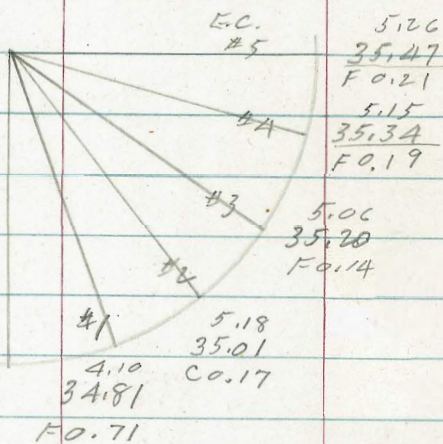 E.C.
#5
5.26
35.47
F 0.21
#4
5.15
35.34
F 0.19
#3
5.06
35.20
F 0.14
#2
5.18
35.01
C 0.17
#1
4.10
34.81
F 0.71